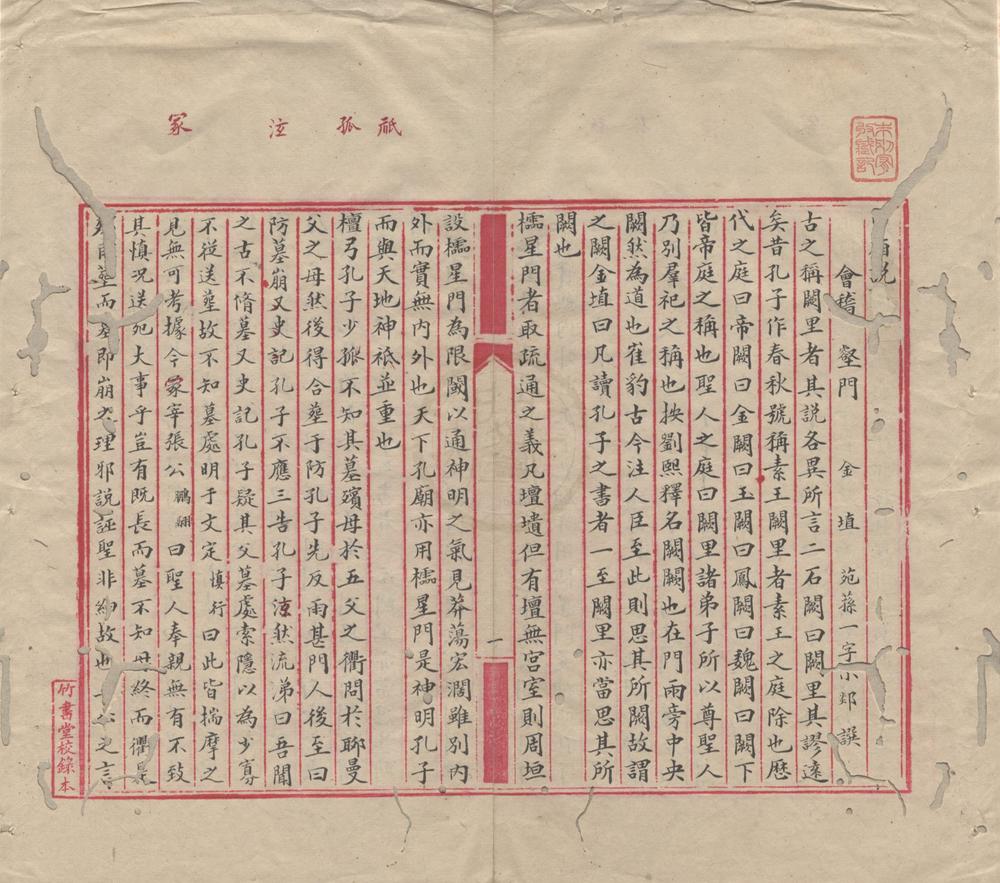 祇
孤
泫
冢
朱別宥收藏記
說
會稽 壑門 金 埴 苑蓀一字小郯 譔
古之稱闕里者其說各異所言二石闕曰闕里其謬遠
矣昔孔子作春秋號稱素王闕里者素王之庭除也歷
代之庭曰帝闕曰金闕曰玉闕曰鳳闕曰魏闕曰闕下
皆帝庭之稱也聖人之庭曰闕里諸弟子所以尊聖人
乃別羣祀之稱也按劉熙釋名闕闕也在門兩旁中央
闕然為道也崔豹古今注人臣至此則思其所闕故謂
之闕金埴曰凡讀孔子之書者一至闕里亦當思其所
闕也
櫺星門者取疏通之義凡壇壝但有壇無宮室則周垣
一
設櫺星門為限閾以通神明之氣見莽蕩宏濶雖別內
外而實無內外也天下孔廟亦用櫺星門是神明孔子
而與天地神祇並重也
檀弓孔子少孤不知其墓殯母於五父之衢問於聊曼
父之母然後得合塟于防孔子先反雨甚門人後至曰
防墓崩又史記孔子不應三告孔子泫然流涕曰吾聞
之古不脩墓又史記孔子疑其父墓處索隱以為少寡
不從送塟故不知墓處明于文定慎行曰此皆揣摩之
見無可考據今冢宰張公鵬翮曰聖人奉親無有不致
其慎况送死大事乎豈有既長而墓不知母終而衢是
雨塟而墓即崩之理邪說誣聖非細故也公之言
竹書堂校錄本